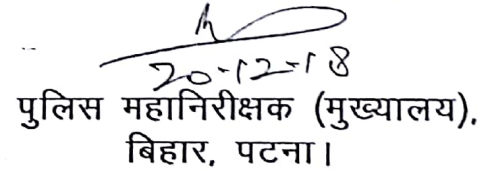 20-12-18
पुलिस महानिरीक्षक (मुख्यालय),
बिहार, पटना।